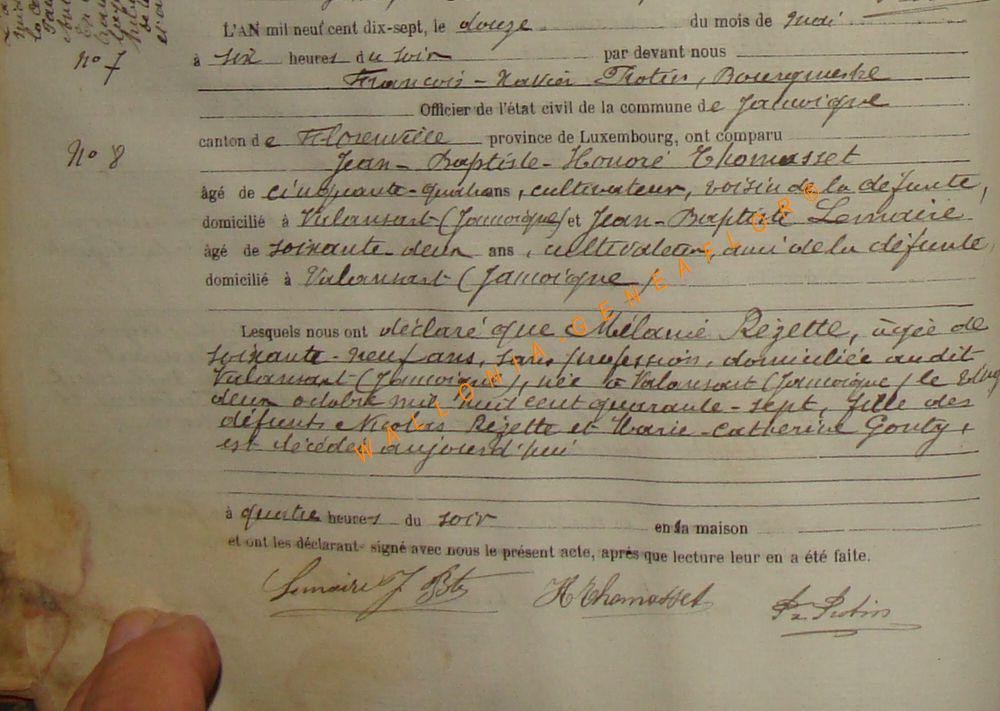 L'AN mil neuf cent dix-sept, le douze du mois de mai
N° 7
à six heures du soir par devant nous
François-Xavier Protin, Bourgmestre
Officier de l'état civil de la commune de Jamoigne
canton de Florenville province de Luxembourg, ont comparu
N° 8
Jean-Baptiste-Honoré Thomasset
âgé de cinquante-quatre ans, cultivateur, voisin de la défunte,
domicilié à Valansart (Jamoigne) et Jean-Baptiste Lemaire
âgé de soixante deux ans, cultivateur, ami de la défunte,
domicilié à Valansart (Jamoigne)
Lesquels nous ont déclaré que Mélanie Rézette, âgée de
soixante-neuf ans, sans profession, domiciliée audit
Valansart (Jamoigne), née à Valansart (Jamoigne) le vingt
deux octobre mil huit cent quarante-sept, fille des
défunts Nicolas Rézette et Marie-Catherine Gouty,
est décédée aujourd'hui
à quatre heures du soir en sa maison
et ont les déclarants signé avec nous le présent acte, après que lecture leur en a été faite.
Lemaire J Bte H Thomasset Fx Protin
WALLONIA-GENEAFLOR®